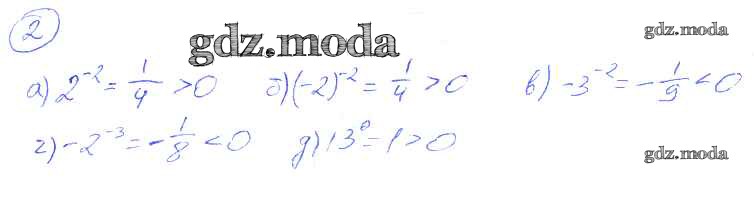 2
gdz.moda
gdz.moda
а) 2⁻² = 1/4 > 0 б) (-2)⁻² = 1/4 > 0 в) -3⁻² = -1/9 < 0
г) -2⁻³ = -1/8 < 0 д) 13⁰ = 1 > 0
gdz.moda